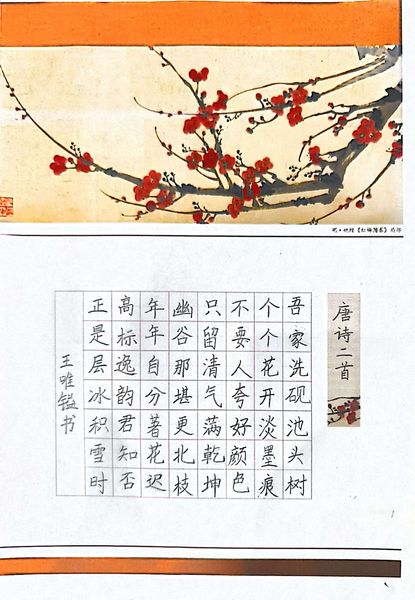 唐诗二首
吾家洗砚池头树
个个花开淡墨痕
不要人夸好颜色
只留清气满乾坤
幽谷那堪更北枝
年年自分著花迟
高标逸韵君知否
正是层冰积雪时
王唯镒书